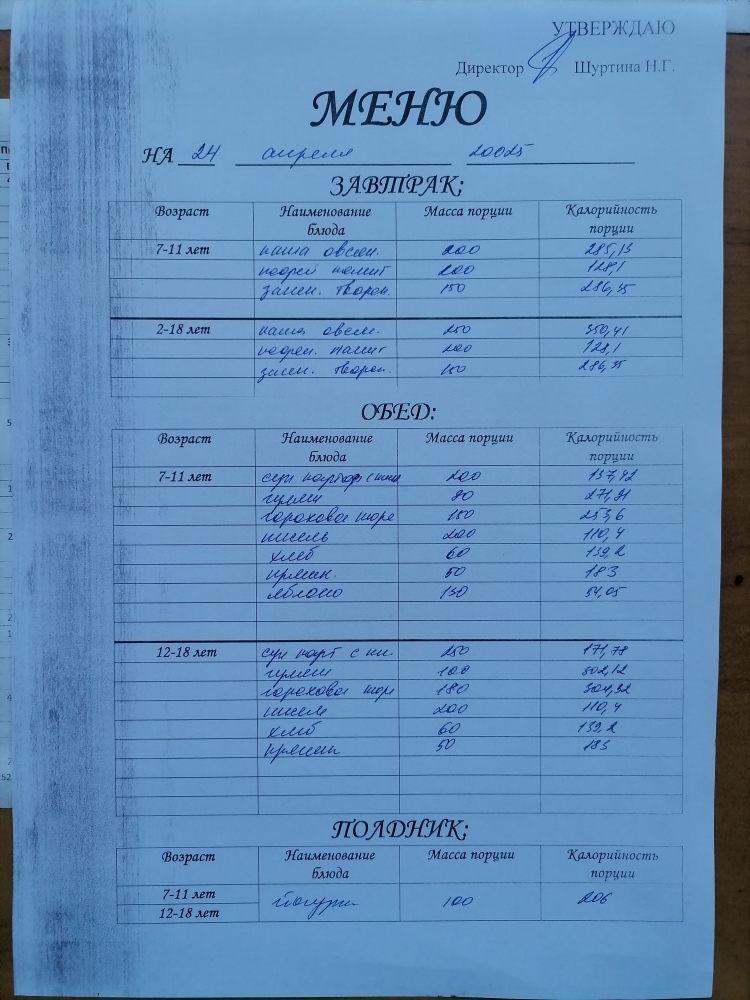 УТВЕРЖДАЮ
Директор Шуртина Н.Г.
МЕНЮ
НА 24 апреля 20025
ЗАВТРАК;
Возраст Наименование блюда Масса порции Калорийность порции
7-11 лет каша овсян. 200 285,13
кофей напит 200 128,1
запек. творож. 150 286,35
2-18 лет каша овсян. 250 350,41
кофейн. напит 200 128,1
запек. творож. 150 286,35
ОБЕД:
Возраст Наименование блюда Масса порции Калорийность порции
7-11 лет суп 200 137,42
гуляш 90 271,91
гороховое пюре 150 253,6
кисель 200 110,4
хлеб 60 139,2
пряник. 50 183
яблоко 130 54,05
12-18 лет суп карт с 250 171,78
гуляш 100 302,12
гороховое пюре 180 304,32
кисель 200 110,4
хлеб 60 139,2
пряник 50 183
ПОЛДНИК;
Возраст Наименование блюда Масса порции Калорийность порции
7-11 лет
12-18 лет
йогурт 100 206